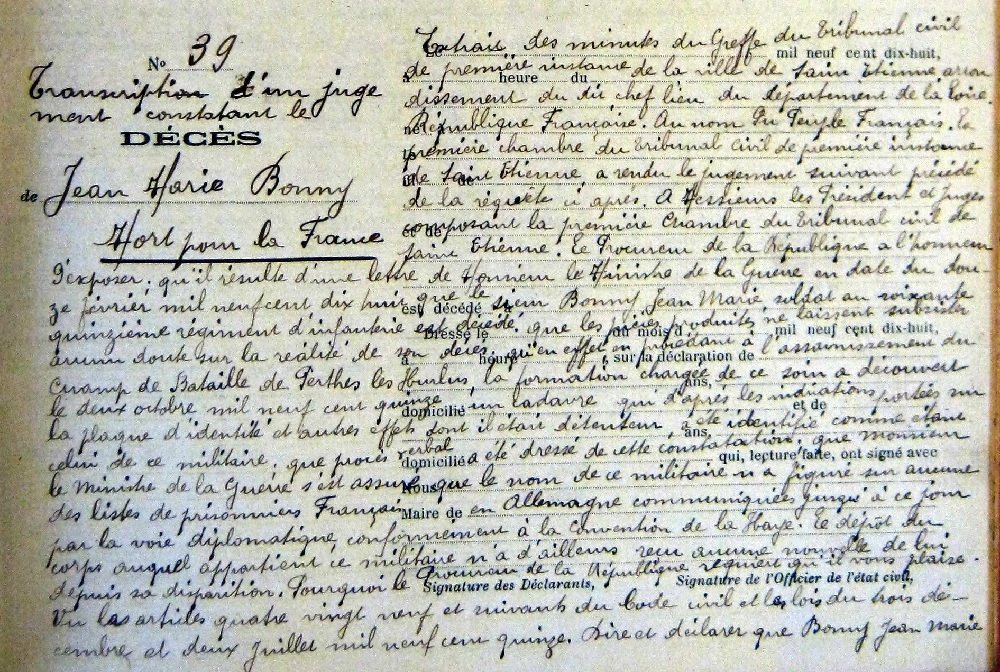 N° 39
Transcription d'un juge
ment constatant le
DÉCÈS
de Jean Marie Bonny
Mort pour la France
Extrait des minutes du Greffe du Tribunal civil
mil neuf cent dix-huit,
de première instance de la ville de Saint Etienne arron
à heure du
dissement du dit chef lieu du département de la Loire.
République Française. Au nom Du Peuple Français. La
première chambre du Tribunal Civil de première instance
de Saint Etienne a rendu le jugement suivant précédé
de la réquête ci après. A Messieurs les Président et Juges
composant la première Chambre du Tribunal civil de
Saint Etienne. Le Procureur de la République a l'honneur
d'exposer; qu'il résulte d'une lettre de Monsieur le Ministre de la Guerre en date du dou-
ze février mil neufcent dix huit que le sieur Bonny Jean Marie soldat au soixante
est décédé à
quinzième régiment d'infanterie est décédé, que les pièces produites ne laissent subsister
Dressé le du mois d mil neuf cent dix-huit,
aucun doute sur la réalité de son décès, qu'en effet en procédant à l'assainissement du
à heure , sur la déclaration de
Champ de Bataille de Perthes les Hurlus, la formation chargée de ce soin a découvert
ans,
le deux octobre mil neuf cent quinze un cadavre qui d'après les indications portées sur
domicilié et de
la plaque d'identité et autres effets dont il était détenteur a été identifié comme étant
ans,
celui de ce militaire, que procès verbal a été dressé de cette constatation; que monsieur
domicilié qui, lecture faite, ont signé avec
le Ministre de la Guerre s'est assuré que le nom de ce militaire n'a figuré sur aucune
Nous
des listes de prisonniers Français en Allemagne communiquées jusqu'à ce jour
Maire de
par la voie diplomatique, conformément à la Convention de la Haye. Le dépôt du
corps auquel appartient ce militaire n'a d'ailleurs reçu aucune nouvelle de lui
depuis sa disparition. Pourquoi le Procureur de la République requiert qu'il vous plaise.
Signature des Déclarants, Signature de l'Officier de l'état civil,
Vu les articles quatre vingt neuf et suivants du Code civil et les lois du trois dé-
cembre et deux Juillet mil neuf cent quinze. Dire et déclarer que Bonny Jean Marie